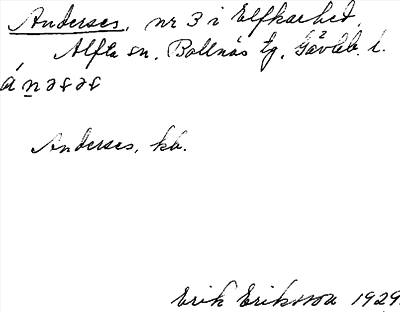 Anderses, nr 3 i Elfkarhed,
Alfta sn, Bollnäs tg, Gävleb. l.
Anderses, kb.
Erik Eriksson 1929